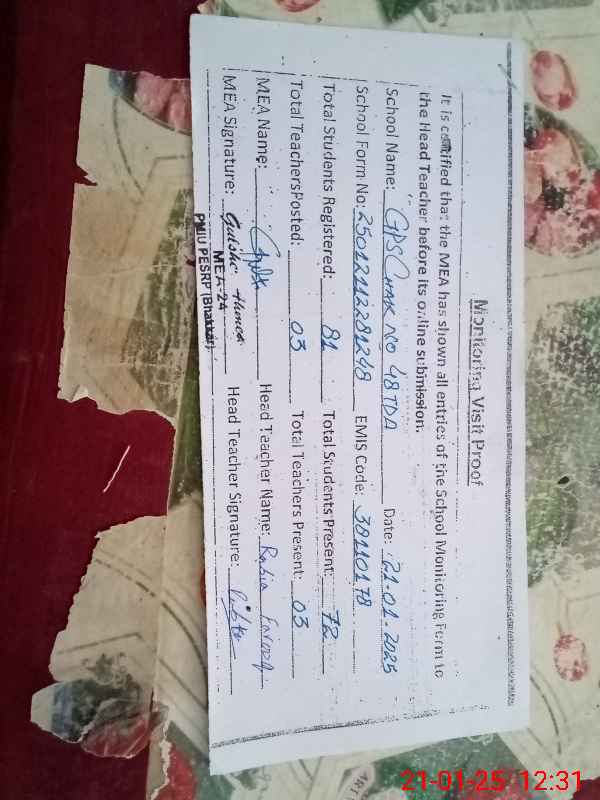 Monitoring Visit Proof
It is certified that the MEA has shown all entries of the School Monitoring Form to
the Head Teacher before its online submission.
School Name: GPS Chak No 48 TDA Date: 21-01-2025
School Form No: EMIS Code: 38110178
Total Students Registered: 81 Total Students Present: 72
Total TeachersPosted: 03 Total Teachers Present: 03
MEA Name: Head Teacher Name: Rabia Farooq
MEA Signature: Head Teacher Signature:
MEA-24
PMIU PESRP (Bhakkar)
21-01-25 12:31